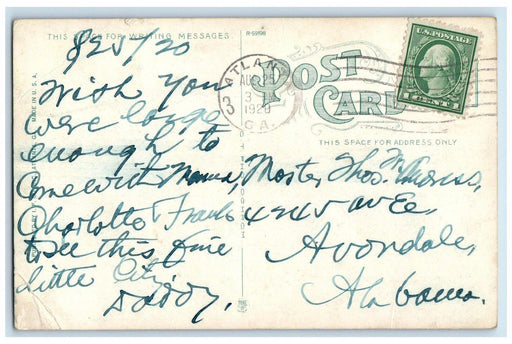 THIS SPACE FOR WRITING MESSAGES
8/25/20
Wish You
were large
enough to
Come with Mama,
Charlotte & Frank
to see this fine
little City.
Daddy.
R-59198
ATLANTA
AUG 25
3
1920
GA.
POST
CARD
U.S. POSTAGE
1 CENT 1
THIS SPACE FOR ADDRESS ONLY
Master Thos. M.
4245 av E.
Avondale,
Alabama.
MADE IN U.S.A.